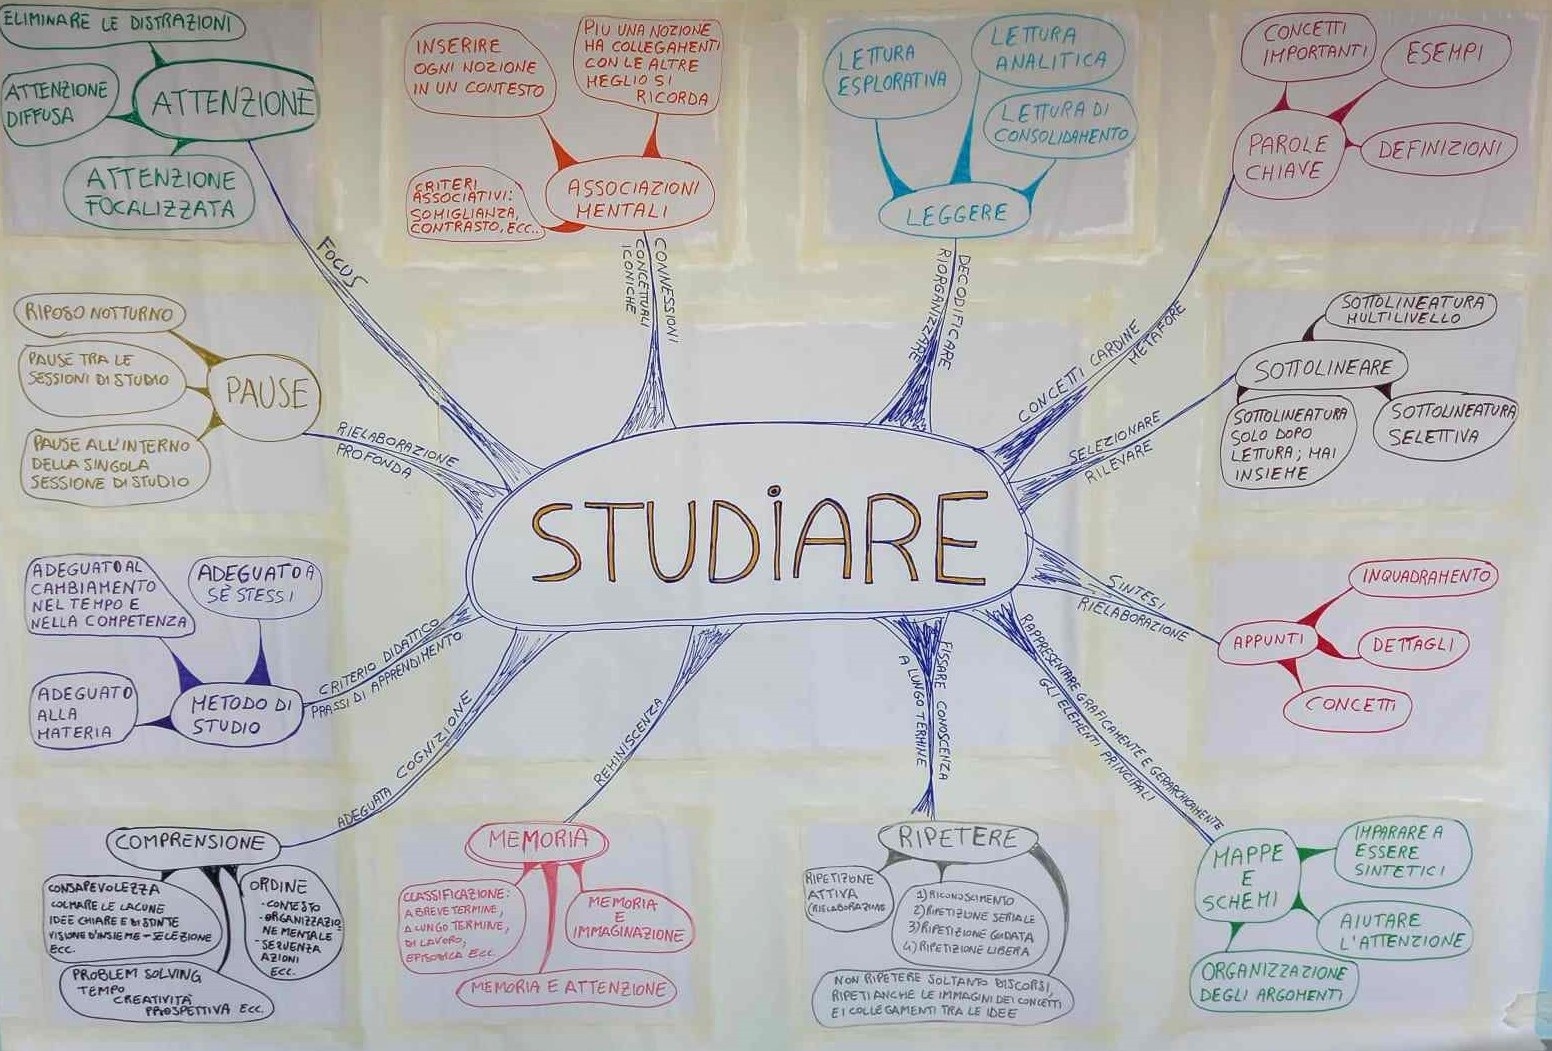 ELIMINARE LE DISTRAZIONI
ATTENZIONE
DIFFUSA
ATTENZIONE
ATTENZIONE
FOCALIZZATA
FOCUS
INSERIRE
OGNI NOZIONE
IN UN CONTESTO
PIÙ UNA NOZIONE
HA COLLEGAMENTI
CON LE ALTRE
MEGLIO SI
RICORDA
CRITERI
ASSOCIATIVI:
SOMIGLIANZA,
CONTRASTO, ECC..
ASSOCIAZIONI
MENTALI
CONNESSIONI
CONCETTUALI
ICONICHE
LETTURA
ESPLORATIVA
LETTURA
ANALITICA
LETTURA DI
CONSOLIDAMENTO
LEGGERE
DECODIFICARE
RIORGANIZZARE
CONCETTI
IMPORTANTI
ESEMPI
PAROLE
CHIAVE
DEFINIZIONI
CONCETTI CARDINE
METAFORE
RIPOSO NOTTURNO
PAUSE TRA LE
SESSIONI DI STUDIO
PAUSE
PAUSE ALL'INTERNO
DELLA SINGOLA
SESSIONE DI STUDIO
RIELABORAZIONE
PROFONDA
SOTTOLINEATURA
MULTILIVELLO
SOTTOLINEARE
SOTTOLINEATURA
SOLO DOPO
LETTURA; MAI
INSIEME
SOTTOLINEATURA
SELETTIVA
SELEZIONARE
RILEVARE
STUDIARE
ADEGUATO AL
CAMBIAMENTO
NEL TEMPO E
NELLA COMPETENZA
ADEGUATO A
SÉ STESSI
ADEGUATO
ALLA
MATERIA
METODO DI
STUDIO
CRITERIO DIDATTICO
PRASSI DI APPRENDIMENTO
INQUADRAMENTO
APPUNTI
DETTAGLI
CONCETTI
SINTESI
RIELABORAZIONE
COMPRENSIONE
CONSAPEVOLEZZA
COLMARE LE LACUNE
IDEE CHIARE E DISTINTE
VISIONE D'INSIEME - SELEZIONE
ECC.
ORDINE
- CONTESTO
- ORGANIZZAZIO
NE MENTALE
- SEQUENZA
AZIONI
ECC.
PROBLEM SOLVING
TEMPO
CREATIVITÀ
PROSPETTIVA ECC.
ADEGUATA COGNIZIONE
MEMORIA
CLASSIFICAZIONE:
A BREVE TERMINE,
A LUNGO TERMINE,
DI LAVORO,
EPISODICA ECC.
MEMORIA
E
IMMAGINAZIONE
MEMORIA E ATTENZIONE
REMINISCENZA
RIPETERE
RIPETIZIONE
ATTIVA
(RIELABORAZIONE
1) RICONOSCIMENTO
2) RIPETIZIONE SERIALE
3) RIPETIZIONE GUIDATA
4) RIPETIZIONE LIBERA
NON RIPETERE SOLTANTO DISCORSI,
RIPETI ANCHE LE IMMAGINI DEI CONCETTI
E I COLLEGAMENTI TRA LE IDEE
FISSARE CONOSCENZA
A LUNGO TERMINE
MAPPE
E
SCHEMI
IMPARARE A
ESSERE
SINTETICI
AIUTARE
L'ATTENZIONE
ORGANIZZAZIONE
DEGLI ARGOMENTI
RAPPRESENTARE GRAFICAMENTE E GERARCHICAMENTE
GLI ELEMENTI PRINCIPALI